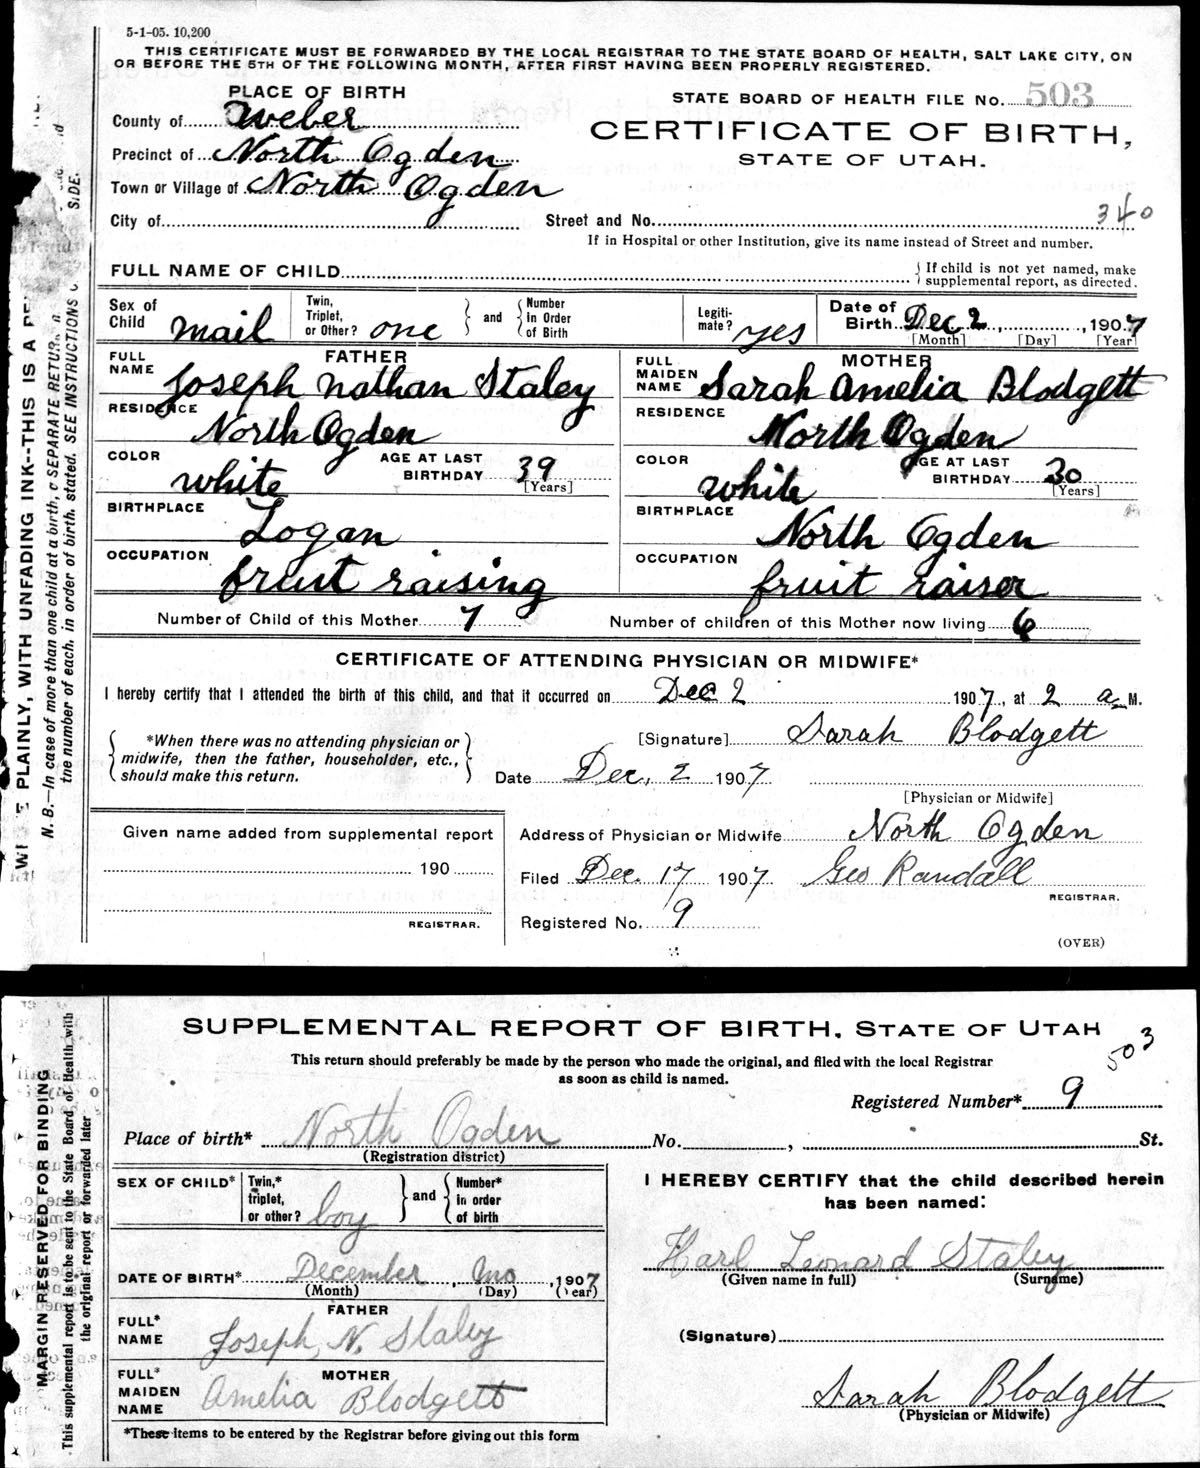 5-1-05. 10,200
THIS CERTIFICATE MUST BE FORWARDED BY THE LOCAL REGISTRAR TO THE STATE BOARD OF HEALTH, SALT LAKE CITY, ON
OR BEFORE THE 5TH OF THE FOLLOWING MONTH, AFTER FIRST HAVING BEEN PROPERLY REGISTERED.
PLACE OF BIRTH
STATE BOARD OF HEALTH FILE No. 503
County of Weber
CERTIFICATE OF BIRTH,
Precinct of North Ogden
STATE OF UTAH.
Town or Village of North Ogden
City of
Street and No.
340
If in Hospital or other Institution, give its name instead of Street and number.
FULL NAME OF CHILD
If child is not yet named, make
supplemental report, as directed.
Sex of Child mail
Twin, Triplet, or Other? one
and
Number in Order of Birth
Legiti-mate? yes
Date of Birth Dec 2, 1907
[Month] [Day] [Year]
FATHER
FULL NAME Joseph Nathan Staley
MOTHER
FULL MAIDEN NAME Sarah Amelia Blodgett
RESIDENCE North Ogden
RESIDENCE North Ogden
COLOR white
AGE AT LAST BIRTHDAY 39 [Years]
COLOR white
AGE AT LAST BIRTHDAY 30 [Years]
BIRTHPLACE Logan
BIRTHPLACE North Ogden
OCCUPATION fruit raising
OCCUPATION fruit raiser
Number of Child of this Mother 7
Number of children of this Mother now living 6
CERTIFICATE OF ATTENDING PHYSICIAN OR MIDWIFE*
I hereby certify that I attended the birth of this child, and that it occurred on Dec 2 1907, at 2 a M.
*When there was no attending physician or
midwife, then the father, householder, etc.,
should make this return.
[Signature] Sarah Blodgett
Date Dec, 2 1907
[Physician or Midwife]
Given name added from supplemental report
190
REGISTRAR.
Address of Physician or Midwife North Ogden
Filed Dec. 17 1907 Geo Randall
REGISTRAR.
Registered No. 9
(OVER)
PLAINLY, WITH UNFADING INK--THIS IS A
N. B.—In case of more than one child at a birth, a SEPARATE RETURN
the number of each, in order of birth, stated. SEE INSTRUCTIONS
SIDE.
SUPPLEMENTAL REPORT OF BIRTH, STATE OF UTAH
503
This return should preferably be made by the person who made the original, and filed with the local Registrar
as soon as child is named.
Registered Number* 9
Place of birth* North Ogden No. , St.
(Registration district)
SEX OF CHILD*
Twin,* triplet, or other? boy
and
Number* in order of birth
I HEREBY CERTIFY that the child described herein
has been named:
Harl Leonard Staley
(Given name in full) (Surname)
DATE OF BIRTH* December, mo, 1907
(Month) (Day) (Year)
FATHER
FULL* NAME Joseph N. Staley
(Signature)
MOTHER
FULL* MAIDEN NAME Amelia Blodgett
Sarah Blodgett
(Physician or Midwife)
*These items to be entered by the Registrar before giving out this form
MARGIN RESERVED FOR BINDING
This supplemental report is to be sent to the State Board of Health with
the original report or forwarded later